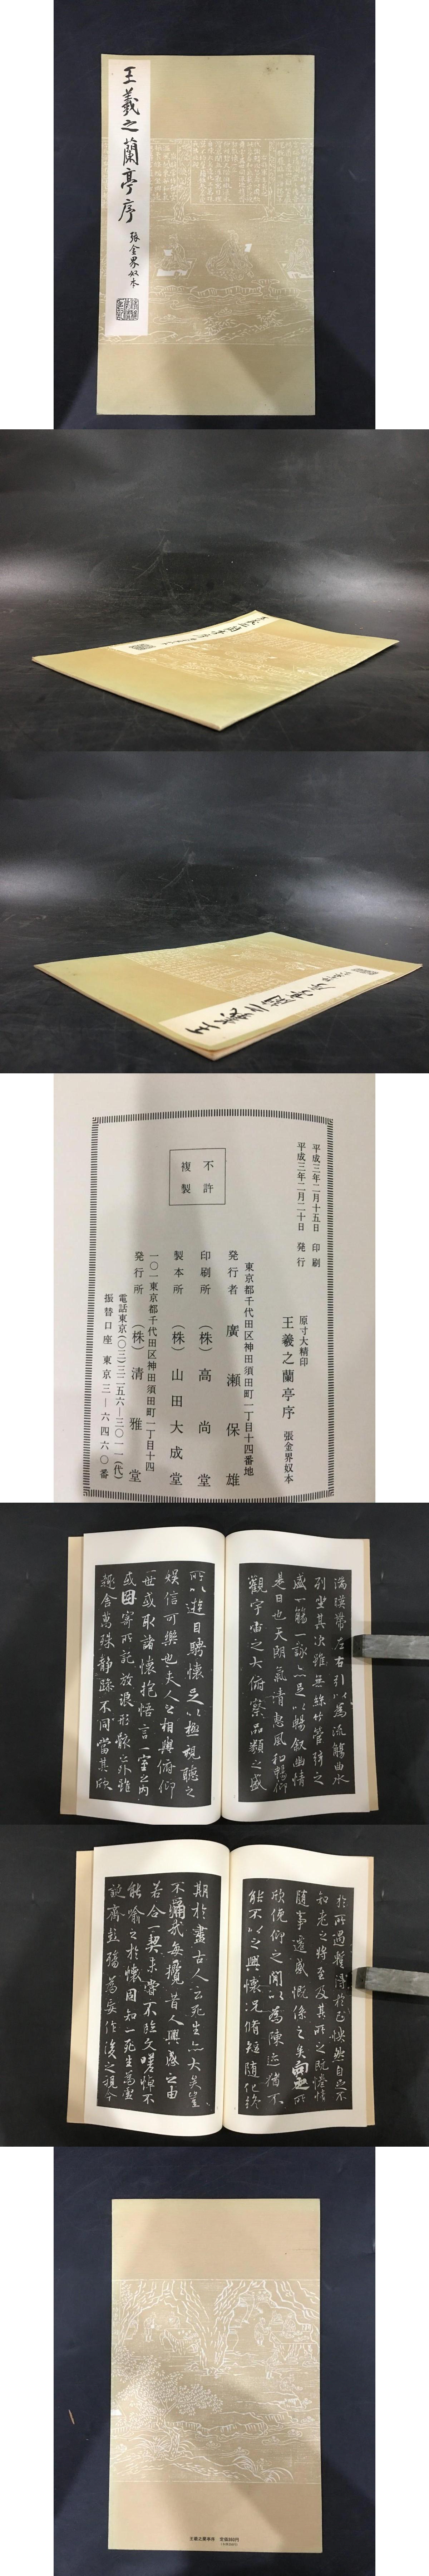 王羲之蘭亭序
張金界奴本
平成三年二月十五日 印刷
平成三年二月二十日 発行
原寸大精印
王羲之蘭亭序 張金界奴本
不許
複製
東京都千代田区神田須田町一丁目十四番地
発行者 廣瀬保雄
印刷所 (株) 高尚堂
製本所 (株) 山田大成堂
一〇一東京都千代田区神田須田町一丁目十四
発行所 (株) 清雅堂
電話東京(〇三)三二五六―三〇一一(代)
振替口座 東京三―六四六〇番
湍暎帶左右引以為流觴曲水
列坐其次雖無絲竹管絃之
盛一觴一詠亦足以暢敘幽情
是日也天朗氣清惠風和暢仰
觀宇宙之大俯察品類之盛
所以遊目騁懷足以極視聽之
娛信可樂也夫人之相與俯仰
一世或取諸懷抱悟言一室之內
或因寄所託放浪形骸之外雖
趣舍萬殊靜躁不同當其欣
於所遇暫得於己快然自足不
知老之將至及其所之既惓情
隨事遷感慨係之矣向之所
欣俛仰之閒以為陳迹猶不
能不以之興懷況脩短隨化終
期於盡古人云死生亦大矣豈
不痛哉每攬昔人興感之由
若合一契未嘗不臨文嗟悼不
能喻之於懷固知一死生為虛
誕齊彭殤為妄作後之視今